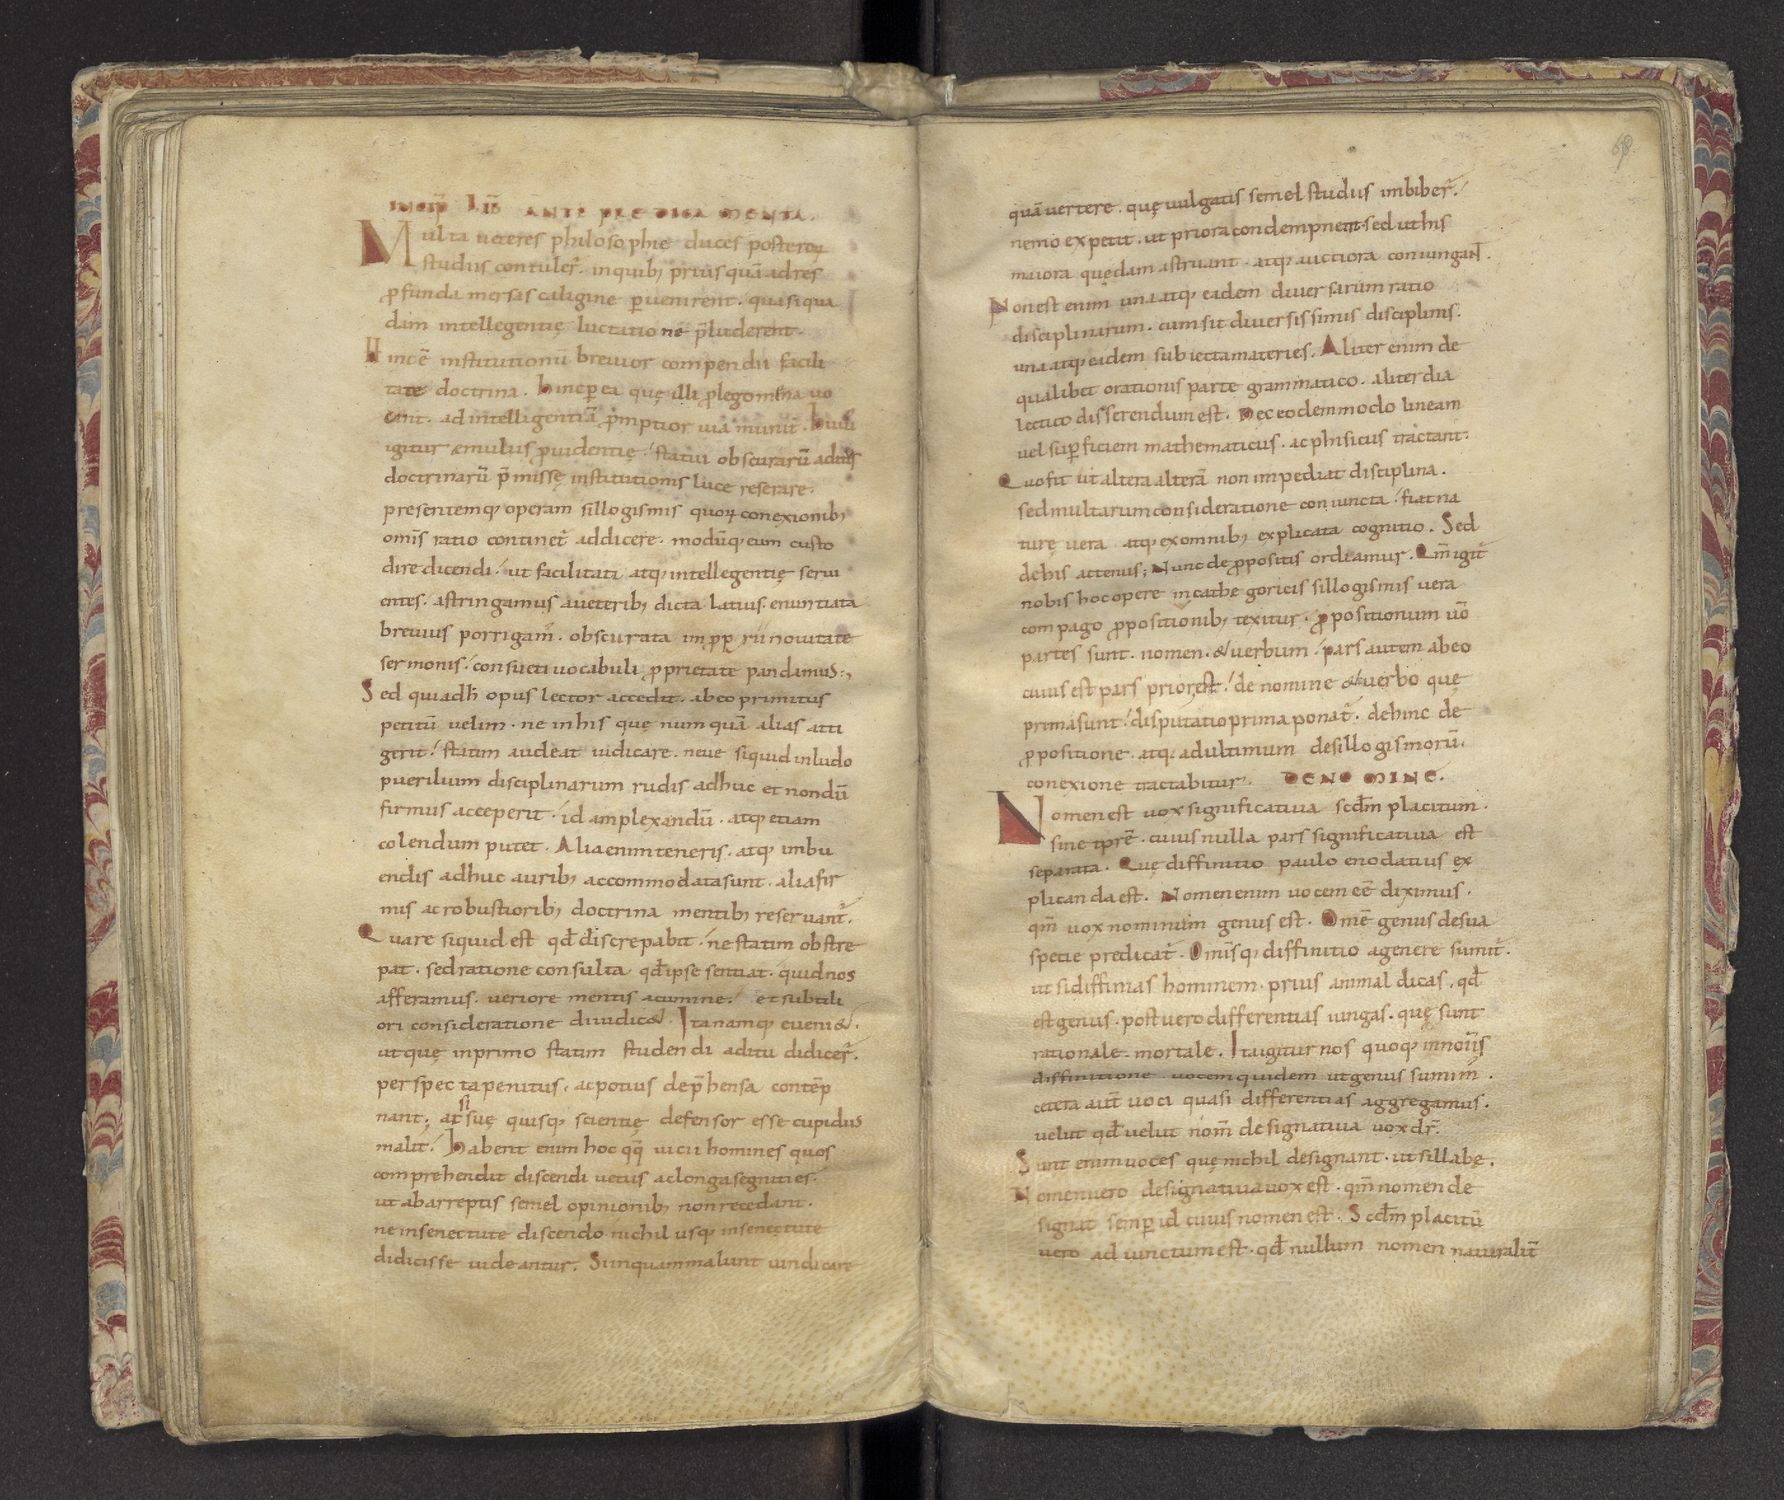 INCIP̄ LIB̄ ANTE PREDICAMENTA.
Multa ueteres philosophie duces posteroꝝ
studiis contuler̄. in quib; prius quā ad res
ꝓfunda mersas caligine ꝑuenirent. quasi qua
dam intellegentię luctatione p̄luderent.
Hinc ē institutionū breuior compendii facili
tate doctrina. hinc ꝑ ea quę illi ꝓlegomena uo
cant. ad intelligentiā p̄mptior uia munit̄. huius
igitur emulus ꝓuidentię. statui obscurarū aditus
doctrinarū p̄missę institutionis luce reserare.
presentemq; operam sillogismis quoꝝ conexionib;
omīs ratio continet̄ addicere. modūq; eum custo
dire dicendi. ut facilitati atq; intellegentię serui
entes. astringamus a ueterib; dicta latius. enuntiata
breuius porrigam̄. obscurata impꝓprii nouitate
sermonis. consueti uocabuli ꝓprietate pandamus:,
Sed qui ad h̄ opus lector accedit. ab eo primitus
petitū uelim. ne in his quę numquā alias atti
gerit. statim audeat iudicare. neue siquid in ludo
puerilium disciplinarum rudis adhuc et nondū
firmus acceperit. id amplexandū. atq; etiam
colendum putet. Alia enim teneris. atq; imbu
endis adhuc aurib; accommodata sunt. alia fir
mis ac robustiorib; doctrina mentib; reseruant̄.
Quare siquid est qd̄ discrepabit. ne statim obstre
pat. sed ratione consulta qd̄ ipse sentiat. quid nos
afferamus. ueriore mentis acumine. et subtili
ori consideratione diiudic&. Ita namq; eueni&.
ut quę in primo statim studendi aditu didicer̄.
perspecta penitus. ac potius dep̄hensa contēp
nant. at si suę quisq; scientię defensor esse cupidus
malit. habent enim hoc qq̄ uicii homines quos
comprehendit discendi uetus ac longa segnities.
ut ab arreptis semel opinionib; non recedant.
ne in senectute discendo nichil usq; in senectute
didicisse uideantur. Sunquam malunt uindicare
68
quā uertere. quę uulgatis semel studiis imbiber̄.
nemo expetit. ut priora condempnent sed ut his
maiora quędam astruant. atq; auctiora coniungant.
Non est enim una atq; eadem diuersarum ratio
disciplinarum. cum sit diuersissimis disciplinis.
una atq; eadem subiecta materies. Aliter enim de
qualibet orationis parte grammatico. aliter dia
lectico disserendum est. Nec eodem modo lineam
uel suꝑficiem mathematicus. ac phisicus tractant.
Quo fit ut altera alterā non impediat disciplina.
sed multarum consideratione coniuncta. fiat na
turę uera atq; ex omnib; explicata cognitio. Sed
de his actenus; Nunc de ꝓpositis ordiamur. Qm̄ igit̄
nobis hoc opere in cathegoricis sillogismis uera
compago ꝓpositionib; texitur. ꝓpositionum uō
partes sunt. nomen. & uerbum. pars autem ab eo
cuius est pars prior est. de nomine & uerbo quę
prima sunt. disputatio prima ponat̄. dehinc de
ꝓpositione. atq; ad ultimum de sillogismorū.
conexione tractabitur. DE NOMINE.
Nomen est uox significatiua scd̄m placitum.
sine tp̄re. cuius nulla pars significatiua est
separata. Quę diffinitio paulo enodatius ex
plicanda est. Nomen enim uocem eē diximus.
qm̄ uox nominum genus est. Omē genus de sua
specie predicat̄. Omīsq; diffinitio a genere sumit̄.
ut si diffinias hominem. prius animal dicas. qd̄
est genus. post uero differentias iungas. quę sunt
rationale. mortale. Ita igitur nos quoq; in nōīs
diffinitione uocem quidem ut genus sumim̄.
cetera aut̄ uoci quasi differentias aggregamus.
uelut qd̄ uelut nom̄ designatiua uox dr̄.
Sunt enim uoces quę nichil designant. ut sillabę.
Nomen uero designatiua uox est. qm̄ nomen de
signat semꝑ id cuius nomen est. Scd̄m placitū
uero adiunctum est. qd̄ nullum nomen naturalit̄